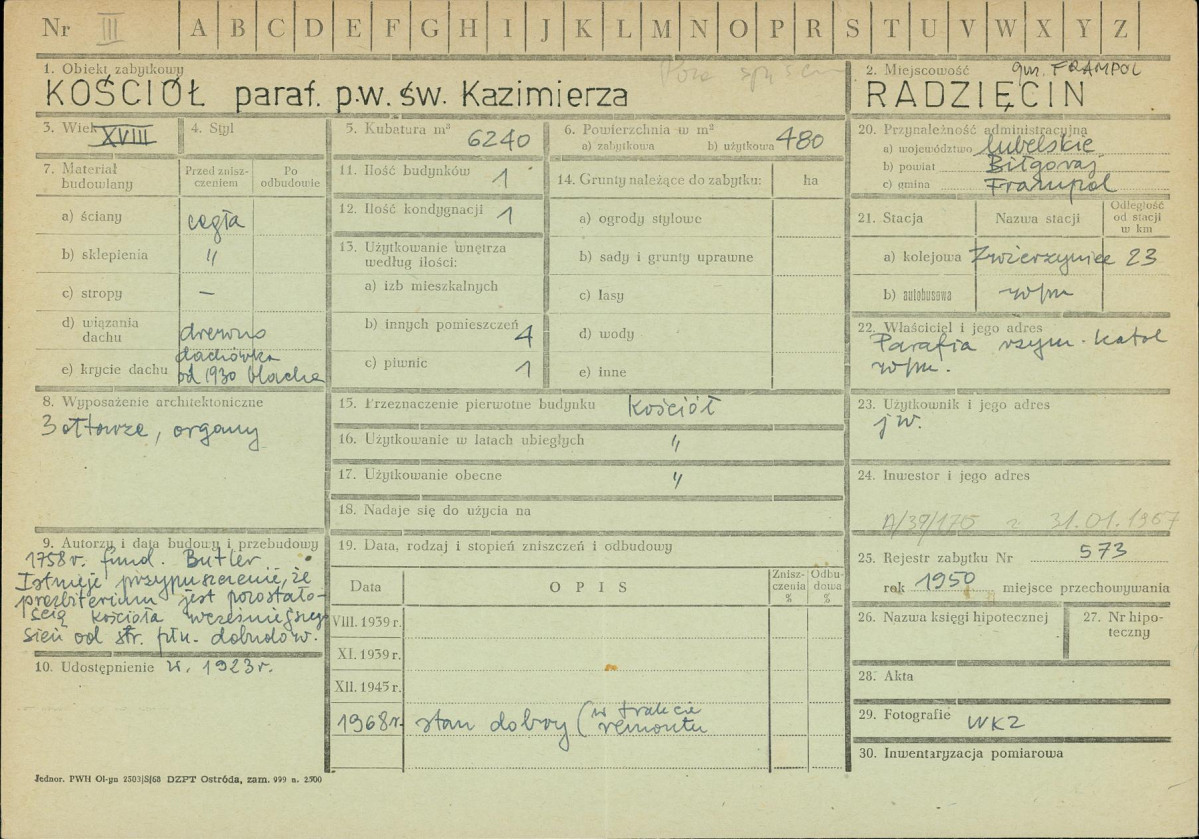 Nr III A B C D E F G H I J K L M N O P R S T U V W X Y Z
1. Obiekt zabytkowy
KOŚCIÓŁ paraf. p.w. św. Kazimierza
2. Miejscowość gm. FRAMPOL
RADZIĘCIN
3. Wiek XVIII
4. Styl
5. Kubatura m³ 6240
6. Powierzchnia w m²
a) zabytkowa b) użytkowa 480
7. Materiał budowlany
Przed zniszczeniem
Po odbudowie
a) ściany cegła
b) sklepienia "
c) stropy —
d) wiązania dachu drewno
e) krycie dachu dachówka
od 1930 blacha
8. Wyposażenie architektoniczne
3 ołtarze, organy
9. Autorzy i data budowy i przebudowy
1758 r. fund. Butler
Istnieje przypuszczenie, że
prezbiterium jest pozostało-
ścią kościoła wcześniejszego
sień od str. płn. dobudow.
10. Udostępnienie w. 1923 r.
11. Ilość budynków 1
12. Ilość kondygnacji 1
13. Użytkowanie wnętrza
według ilości:
a) izb mieszkalnych
b) innych pomieszczeń 4
c) piwnic 1
14. Grunty należące do zabytku: ha
a) ogrody stylowe
b) sady i grunty uprawne
c) lasy
d) wody
e) inne
15. Przeznaczenie pierwotne budynku kościół
16. Użytkowanie w latach ubiegłych "
17. Użytkowanie obecne "
18. Nadaje się do użycia na
19. Data, rodzaj i stopień zniszczeń i odbudowy
Data
OPIS
Zniszczenia %
Odbudowa %
VIII. 1939 r.
XI. 1939 r.
XII. 1945 r.
1968 r. stan dobry (w trakcie
remontu
20. Przynależność administracyjna
a) województwo lubelskie
b) powiat Biłgoraj
c) gmina Frampol
21. Stacja
Nazwa stacji
Odległość
od stacji
w km
a) kolejowa Zwierzyniec 23
b) autobusowa w/m
22. Właściciel i jego adres
Parafia rzym. katol
w/m.
23. Użytkownik i jego adres
jw.
24. Inwestor i jego adres
A/39/175 z 31.01.1967
25. Rejestr zabytku Nr 573
rok 1950 miejsce przechowywania
26. Nazwa księgi hipotecznej
27. Nr hipo-
teczny
28. Akta
29. Fotografie WKZ
30. Inwentaryzacja pomiarowa
Jednor. PWH Ol-yn 2503/S/68 DZPT Ostróda, zam. 999 n. 2500